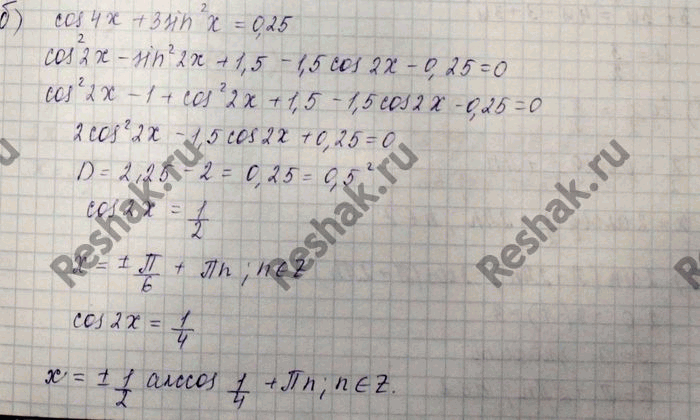 б) cos4x + 3sin²x = 0,25
cos²2x - sin²2x + 1,5 - 1,5cos2x - 0,25 = 0
cos²2x - 1 + cos²2x + 1,5 - 1,5cos2x - 0,25 = 0
2cos²2x - 1,5cos2x + 0,25 = 0
D = 2,25 - 2 = 0,25 = 0,5²
cos2x = 1/2
x = ± П/6 + Пn; n∈Z
cos2x = 1/4
x = ± 1/2 arccos 1/4 + Пn; n∈Z.
Reshak.ru
Reshak.ru
Reshak.ru
Reshak.ru